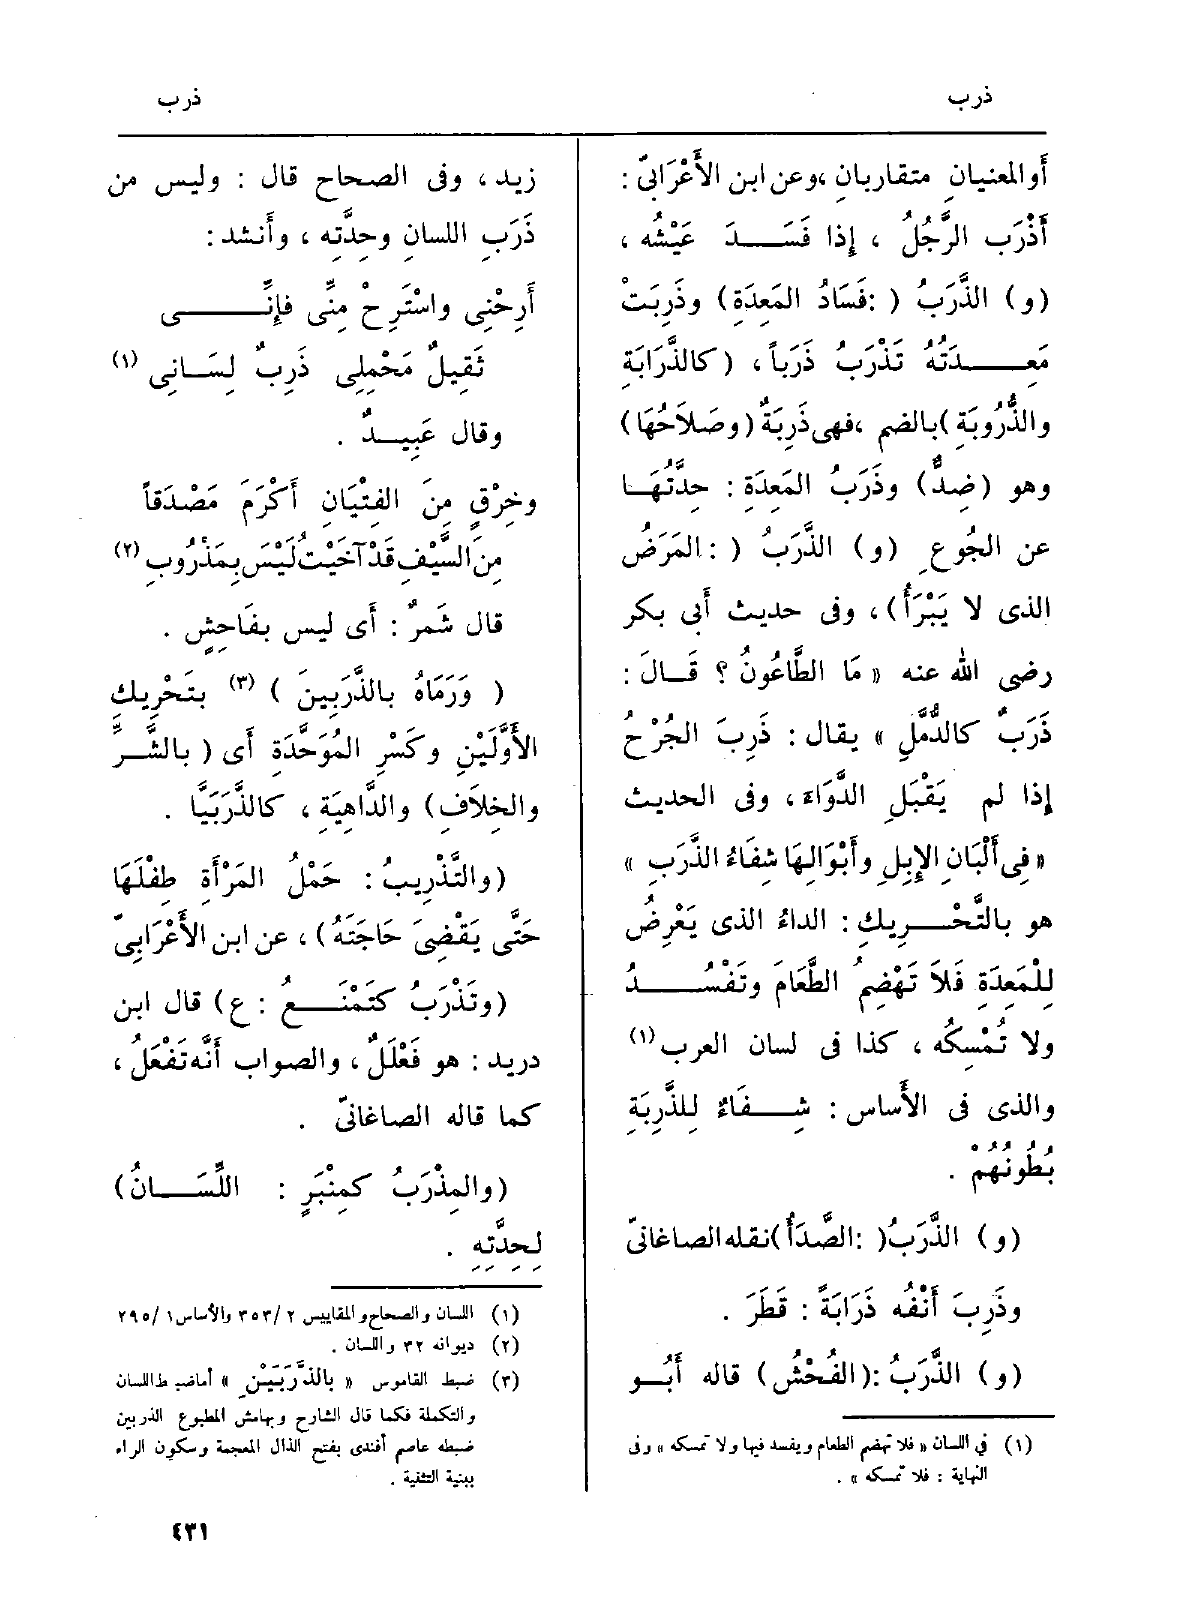 ذرب
ذرب
أو المعنيانِ متقاربانِ ، وعن ابن الأَعْرَابىّ :
أَذْرَب الرَّجُلُ ، إِذا فَسَـدَ عَيْشُه ،
(و) الذَّرَبُ ( : فَسَادُ المَعِدَةِ) وذَرِبَتْ
مَعِـدَتُهُ تَذْرَبُ ذَرَباً ، (كالذَّرَابَةِ
والذُّرُوبَةِ) بالضم ، فهى ذَرِبَةٌ (وصَلَاحُهَا)
وهو (ضِدٌّ) وذَرَبُ المَعِدَةِ : حِدَّتُهَـا
عن الجُوعِ (و) الذَّرَبُ ( : المَرَضُ
الذى لا يَبْرَأُ) ، وفى حديث أَبى بكر
رضى الله عنه « مَا الطَّاعُونُ ؟ قَـالَ :
ذَرَبٌ كالدُّمَّلِ » يقال : ذَرِبَ الجُرْحُ
إِذا لم يَقْبَلِ الدَّوَاءَ ، وفى الحديث
« فِى أَلْبَانِ الإِبِلِ وأَبْوَالِهَا شِفَاءُ الذَّرَبِ »
هو بالتَّحْـرِيكِ : الداءُ الذى يَعْرِضُ
لِلْمَعِدَةِ فَلَا تَهْضِمُ الطَّعَامَ وتَفْسُـدُ
ولا تُمْسِكُه ، كذا فى لسان العرب (١)
والذى فى الأَساس : شِـفَاءٌ لِلذَّرِبَةِ
بُطُونُهُمْ .
(و) الذَّرَبُ ( : الصَّدَأُ) نقله الصاغانىّ
وذَرِبَ أَنْفُه ذَرَابَةً : قَطَرَ .
(و) الذَّرَبُ : (الفُحْشُ) قاله أَبُـو
(١) فى اللسان « فلا تهضم الطعام ويفسد فيها ولا تمسكه » وفى
النهاية : فلا تمسكه » .
زيد ، وفى الصحاح قال : وليس من
ذَرَبِ اللسانِ وحِدَّتِه ، وأَنشد :
أَرِحْنِى واسْتَرِحْ مِنِّى فإِنِّـى
ثَقِيلٌ مَحْمِلِى ذَرِبٌ لِسَـانِى (١)
وقال عَبِيـدٌ .
وخِرْقٍ مِنَ الفِتْيَانِ أَكْرَمَ مَصْدَقاً
مِنَ السَّيْفِ قَدْ آخَيْتُ لَيْسَ بِمَذْرُوبِ (٢)
قال شَمرٌ : أَى ليس بفَاحِشٍ .
( وَرَمَاهُ بالذَّرَبِينَ ) (٣) بتَحْرِيكِ
الأَوَّلَيْنِ وكَسْرِ المُوَحَّدَةِ أَى ( بالشَّـرِّ
والخِلَافِ) والدَّاهِيَةِ ، كالذَّرَبَيَّا .
(والتَّذْرِيبُ : حَمْلُ المَرْأَةِ طِفْلَهَا
حَتَّى يَقْضِىَ حَاجَتَهُ) ، عن ابن الأَعْرَابِىّ
(وتَذْرَبُ كَتَمْنَـعُ : ع) قال ابن
دريد : هو فَعْلَلٌ ، والصواب أَنَّه تَفْعَلُ ،
كما قاله الصاغانىّ .
(والمِذْرَبُ كمِنْبَرٍ : اللِّسَـانُ)
لِحِدَّتِهِ .
(١) اللسان والصحاح والمقاييس ٢ / ٣٥٣ والأساس ١ / ٢٩٥
(٢) ديوانه ٣٢ واللسان .
(٣) ضبط القاموس « بالذَّرَبَيْنِ » أما ضبط اللسان
والتكملة فكما قال الشارح وبهامش المطبوع الذربين
ضبطه عاصم أفندى بفتح الذال المعجمة وسكون الراء
ببنية التثنية .
٤٣١